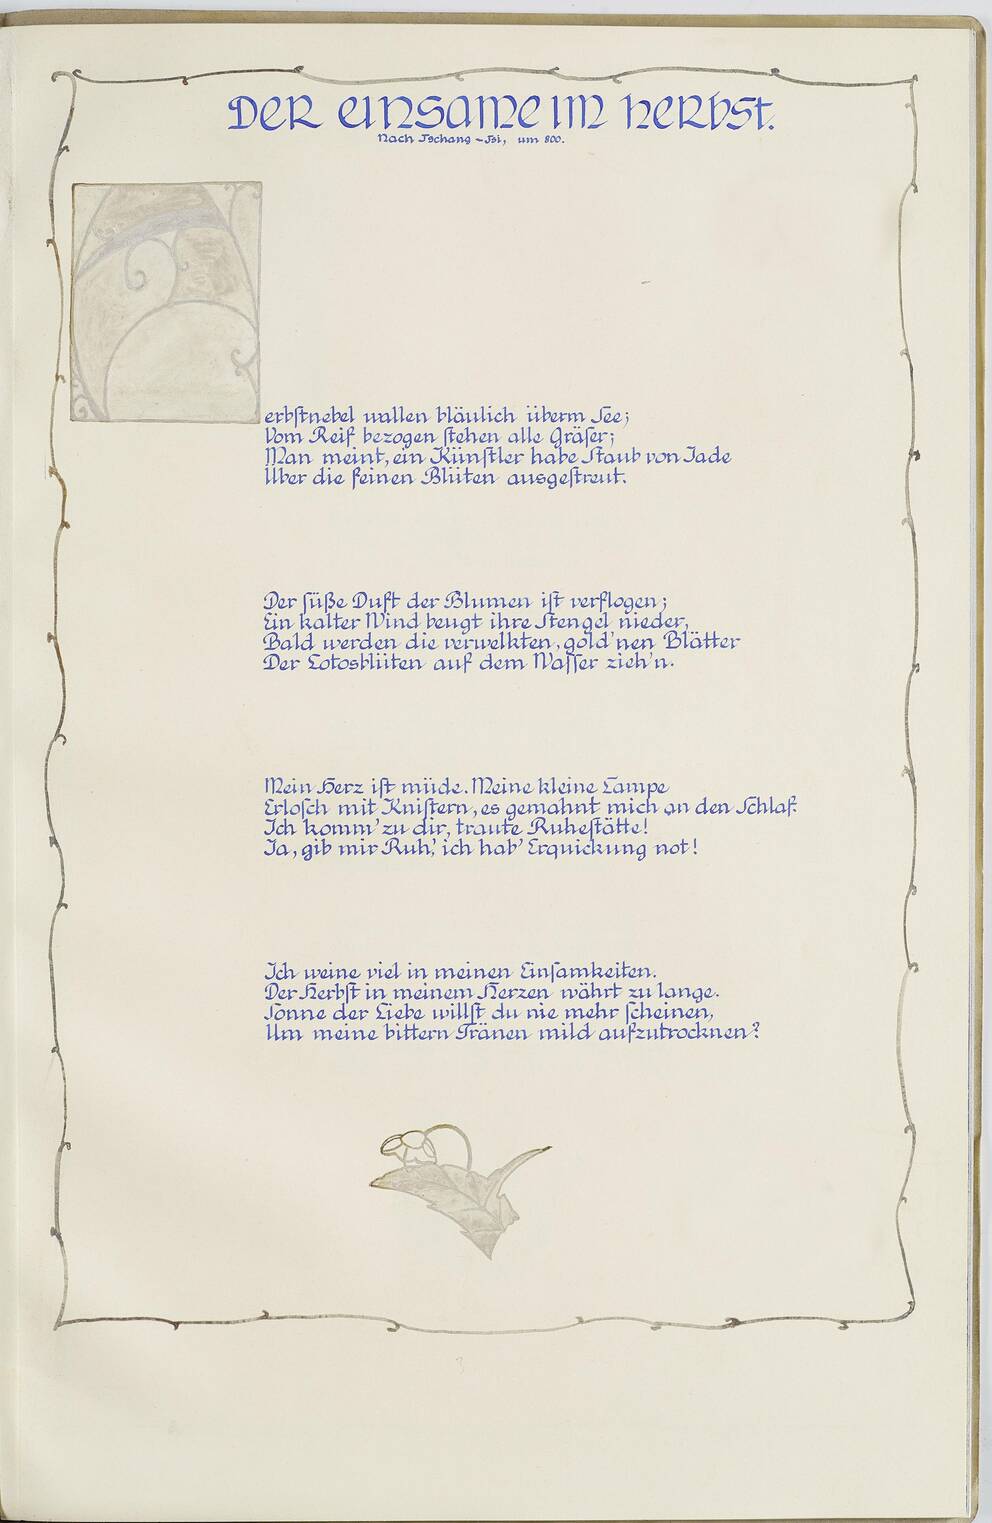 DER EINSAME IM HERBST.
Nach Tschang-Tsi, um 800.
Herbstnebel wallen bläulich überm See;
Vom Reif bezogen stehen alle Gräser;
Man meint, ein Künstler habe Staub von Jade
Über die feinen Blüten ausgestreut.
Der süße Duft der Blumen ist verflogen;
Ein kalter Wind beugt ihre Stengel nieder,
Bald werden die verwelkten, gold'nen Blätter
Der Lotosblüten auf dem Wasser zieh'n.
Mein Herz ist müde. Meine kleine Lampe
Erlosch mit Knistern, es gemahnt mich an den Schlaf.
Ich komm' zu dir, traute Ruhestätte!
Ja, gib mir Ruh', ich hab' Erquickung not!
Ich weine viel in meinen Einsamkeiten.
Der Herbst in meinem Herzen währt zu lange.
Sonne der Liebe willst du nie mehr scheinen,
Um meine bittern Tränen mild aufzutrocknen?
3